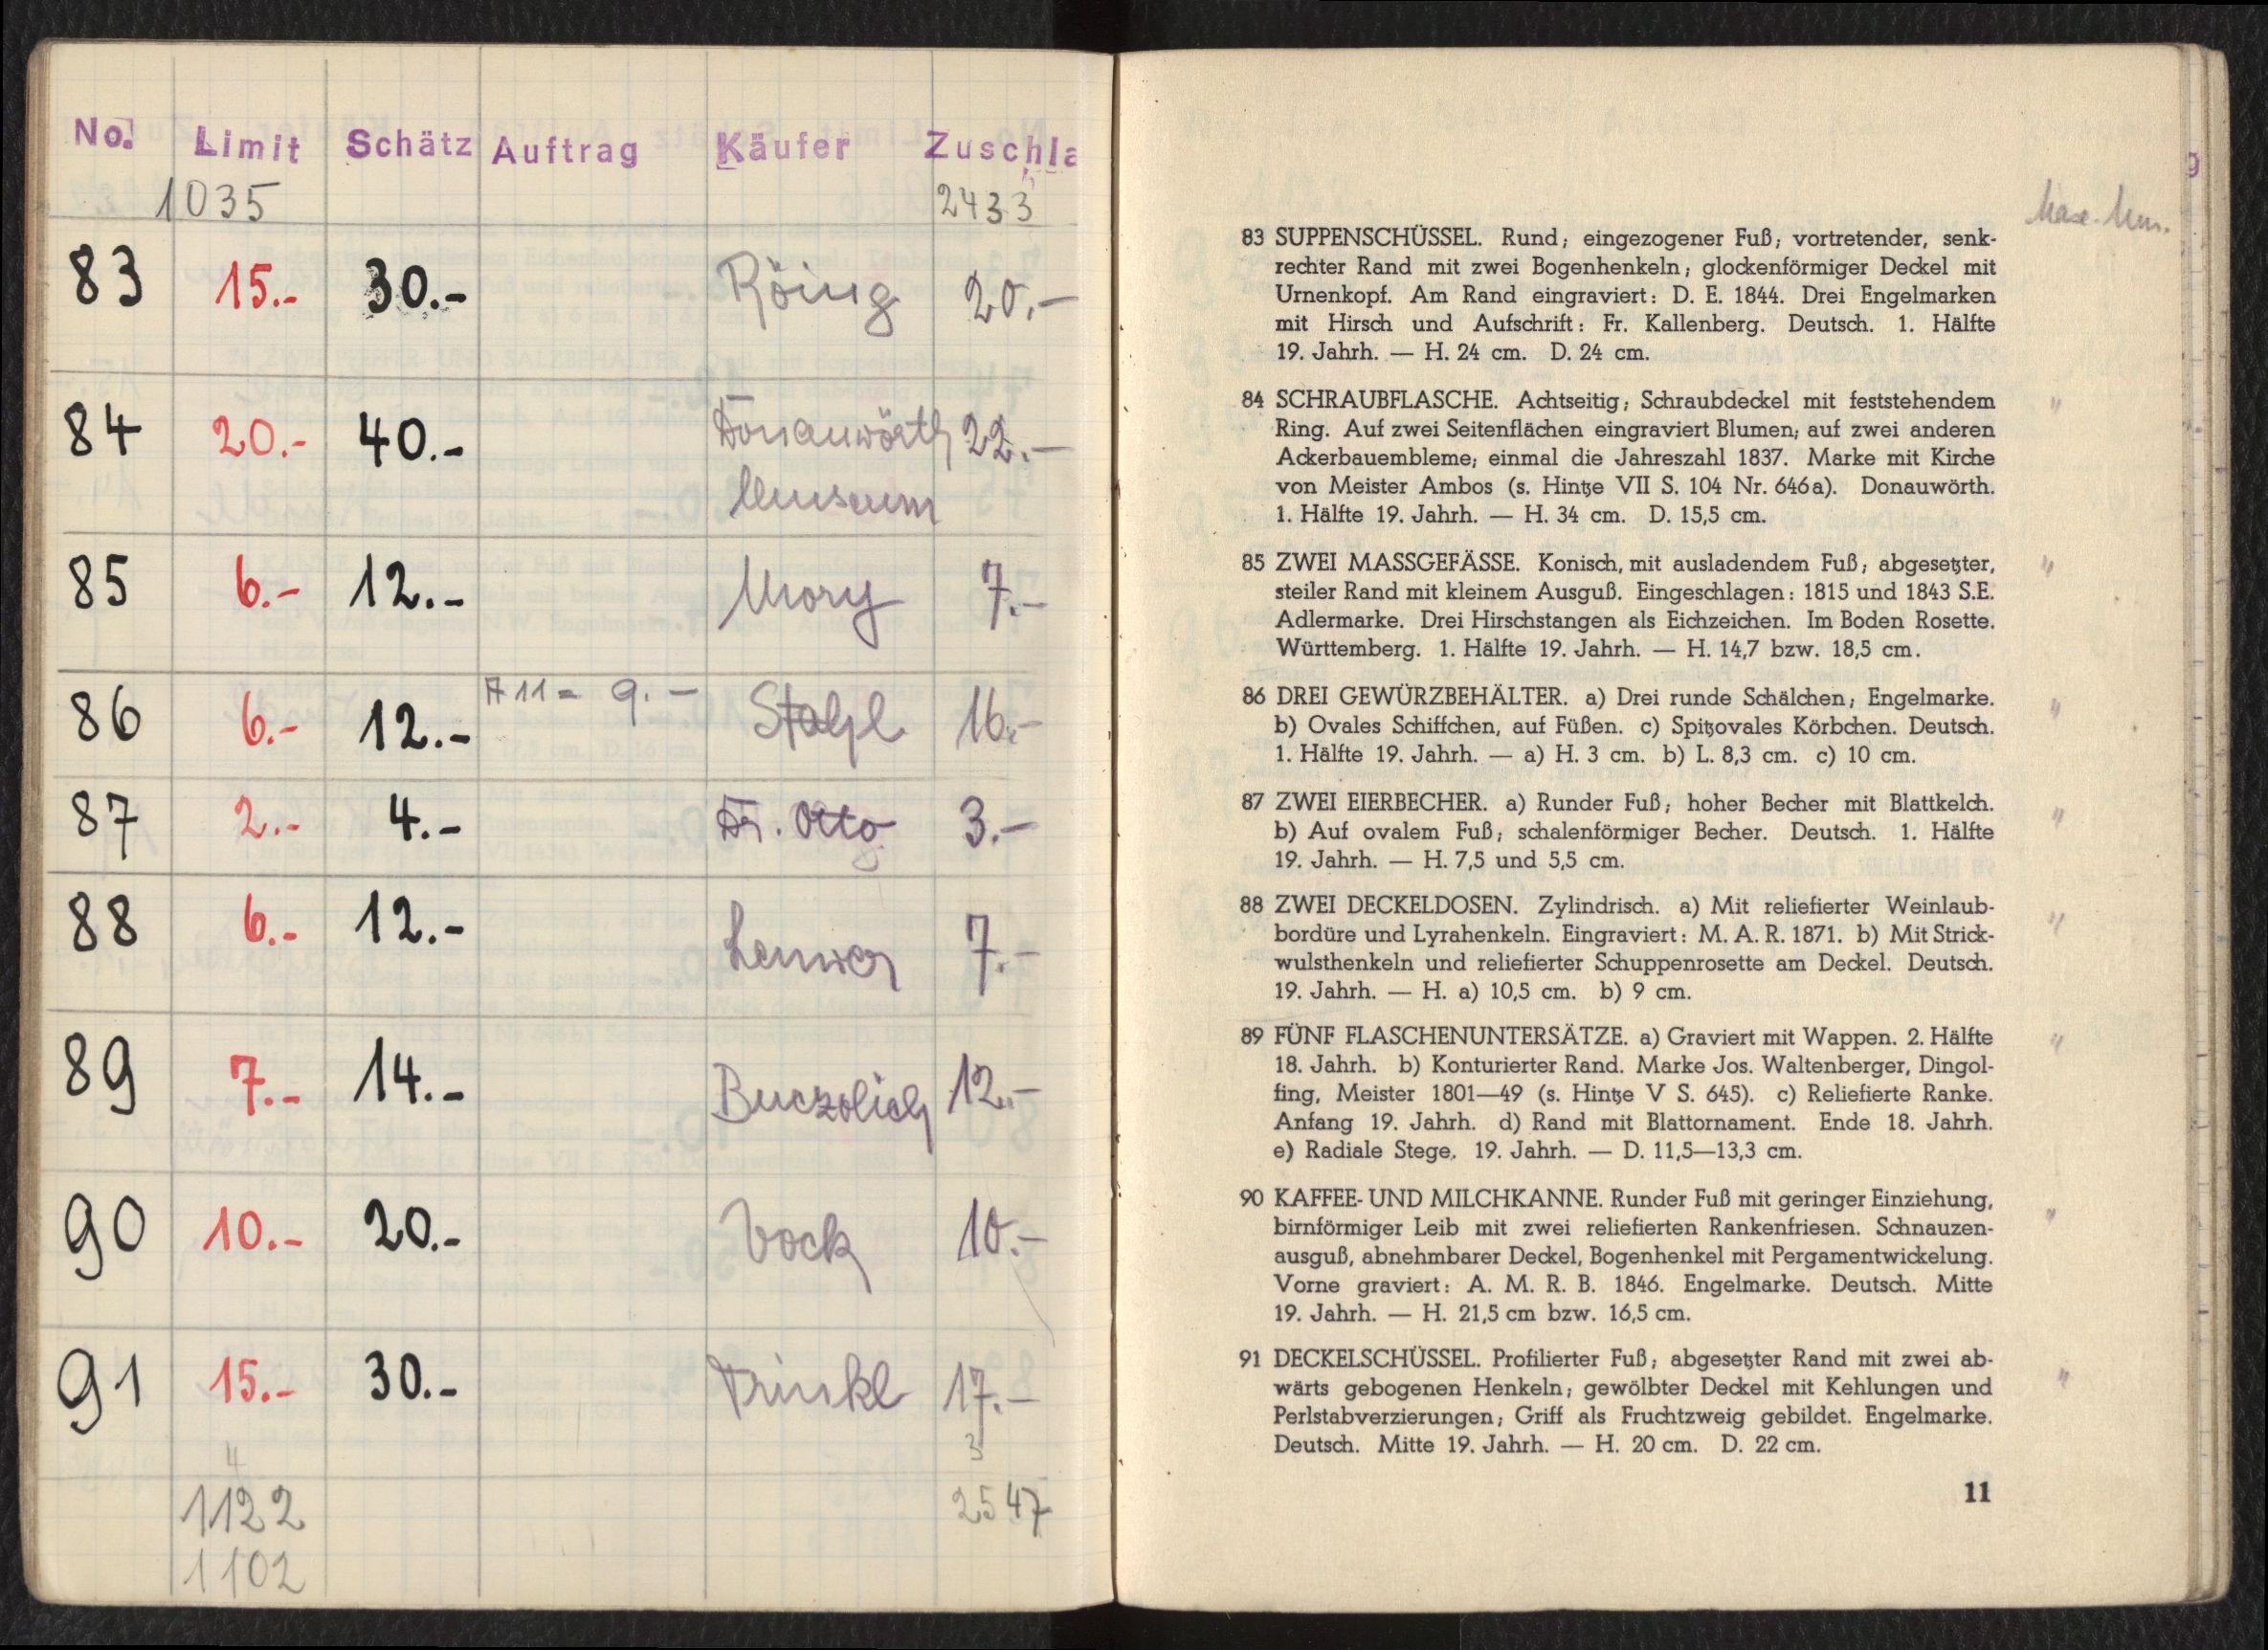 No. Limit Schätz Auftrag Käufer Zuschla
1035 2433
83 15.- 30.- Röing 20.-
84 20.- 40.- Donauwörth 22.-
Museum
85 6.- 12.- Mory 7.-
86 6.- 12.- A 11 = 9.- Stahl 16.-
87 2.- 4.- Dr. Otto 3.-
88 6.- 12.- 7.-
89 7.- 14.- Buczolich 12.-
90 10.- 20.- Vock 10.-
91 15.- 30.- Trinkl 17.-
4 3
1122 2547
1102
g
83 SUPPENSCHÜSSEL. Rund; eingezogener Fuß; vortretender, senk-
rechter Rand mit zwei Bogenhenkeln; glockenförmiger Deckel mit
Urnenkopf. Am Rand eingraviert: D. E. 1844. Drei Engelmarken
mit Hirsch und Aufschrift: Fr. Kallenberg. Deutsch. 1. Hälfte
19. Jahrh. — H. 24 cm. D. 24 cm.
84 SCHRAUBFLASCHE. Achtseitig; Schraubdeckel mit feststehendem "
Ring. Auf zwei Seitenflächen eingraviert Blumen; auf zwei anderen
Ackerbauembleme; einmal die Jahreszahl 1837. Marke mit Kirche
von Meister Ambos (s. Hintze VII S. 104 Nr. 646a). Donauwörth.
1. Hälfte 19. Jahrh. — H. 34 cm. D. 15,5 cm.
85 ZWEI MASSGEFÄSSE. Konisch, mit ausladendem Fuß; abgesetzter, "
steiler Rand mit kleinem Ausguß. Eingeschlagen: 1815 und 1843 S.E.
Adlermarke. Drei Hirschstangen als Eichzeichen. Im Boden Rosette.
Württemberg. 1. Hälfte 19. Jahrh. — H. 14,7 bzw. 18,5 cm.
86 DREI GEWÜRZBEHÄLTER. a) Drei runde Schälchen; Engelmarke. "
b) Ovales Schiffchen, auf Füßen. c) Spitzovales Körbchen. Deutsch.
1. Hälfte 19. Jahrh. — a) H. 3 cm. b) L. 8,3 cm. c) 10 cm.
87 ZWEI EIERBECHER. a) Runder Fuß; hoher Becher mit Blattkelch. "
b) Auf ovalem Fuß; schalenförmiger Becher. Deutsch. 1. Hälfte
19. Jahrh. — H. 7,5 und 5,5 cm.
88 ZWEI DECKELDOSEN. Zylindrisch. a) Mit reliefierter Weinlaub- "
bordüre und Lyrahenkeln. Eingraviert: M. A. R. 1871. b) Mit Strick-
wulsthenkeln und reliefierter Schuppenrosette am Deckel. Deutsch.
19. Jahrh. — H. a) 10,5 cm. b) 9 cm.
89 FÜNF FLASCHENUNTERSÄTZE. a) Graviert mit Wappen. 2. Hälfte "
18. Jahrh. b) Konturierter Rand. Marke Jos. Waltenberger, Dingol-
fing, Meister 1801—49 (s. Hintze V S. 645). c) Reliefierte Ranke.
Anfang 19. Jahrh. d) Rand mit Blattornament. Ende 18. Jahrh.
e) Radiale Stege. 19. Jahrh. — D. 11,5—13,3 cm.
90 KAFFEE- UND MILCHKANNE. Runder Fuß mit geringer Einziehung, "
birnförmiger Leib mit zwei reliefierten Rankenfriesen. Schnauzen-
ausguß, abnehmbarer Deckel, Bogenhenkel mit Pergamentwickelung.
Vorne graviert: A. M. R. B. 1846. Engelmarke. Deutsch. Mitte
19. Jahrh. — H. 21,5 cm bzw. 16,5 cm.
91 DECKELSCHÜSSEL. Profilierter Fuß; abgesetzter Rand mit zwei ab- "
wärts gebogenen Henkeln; gewölbter Deckel mit Kehlungen und
Perlstabverzierungen; Griff als Fruchtzweig gebildet. Engelmarke.
Deutsch. Mitte 19. Jahrh. — H. 20 cm. D. 22 cm.
11